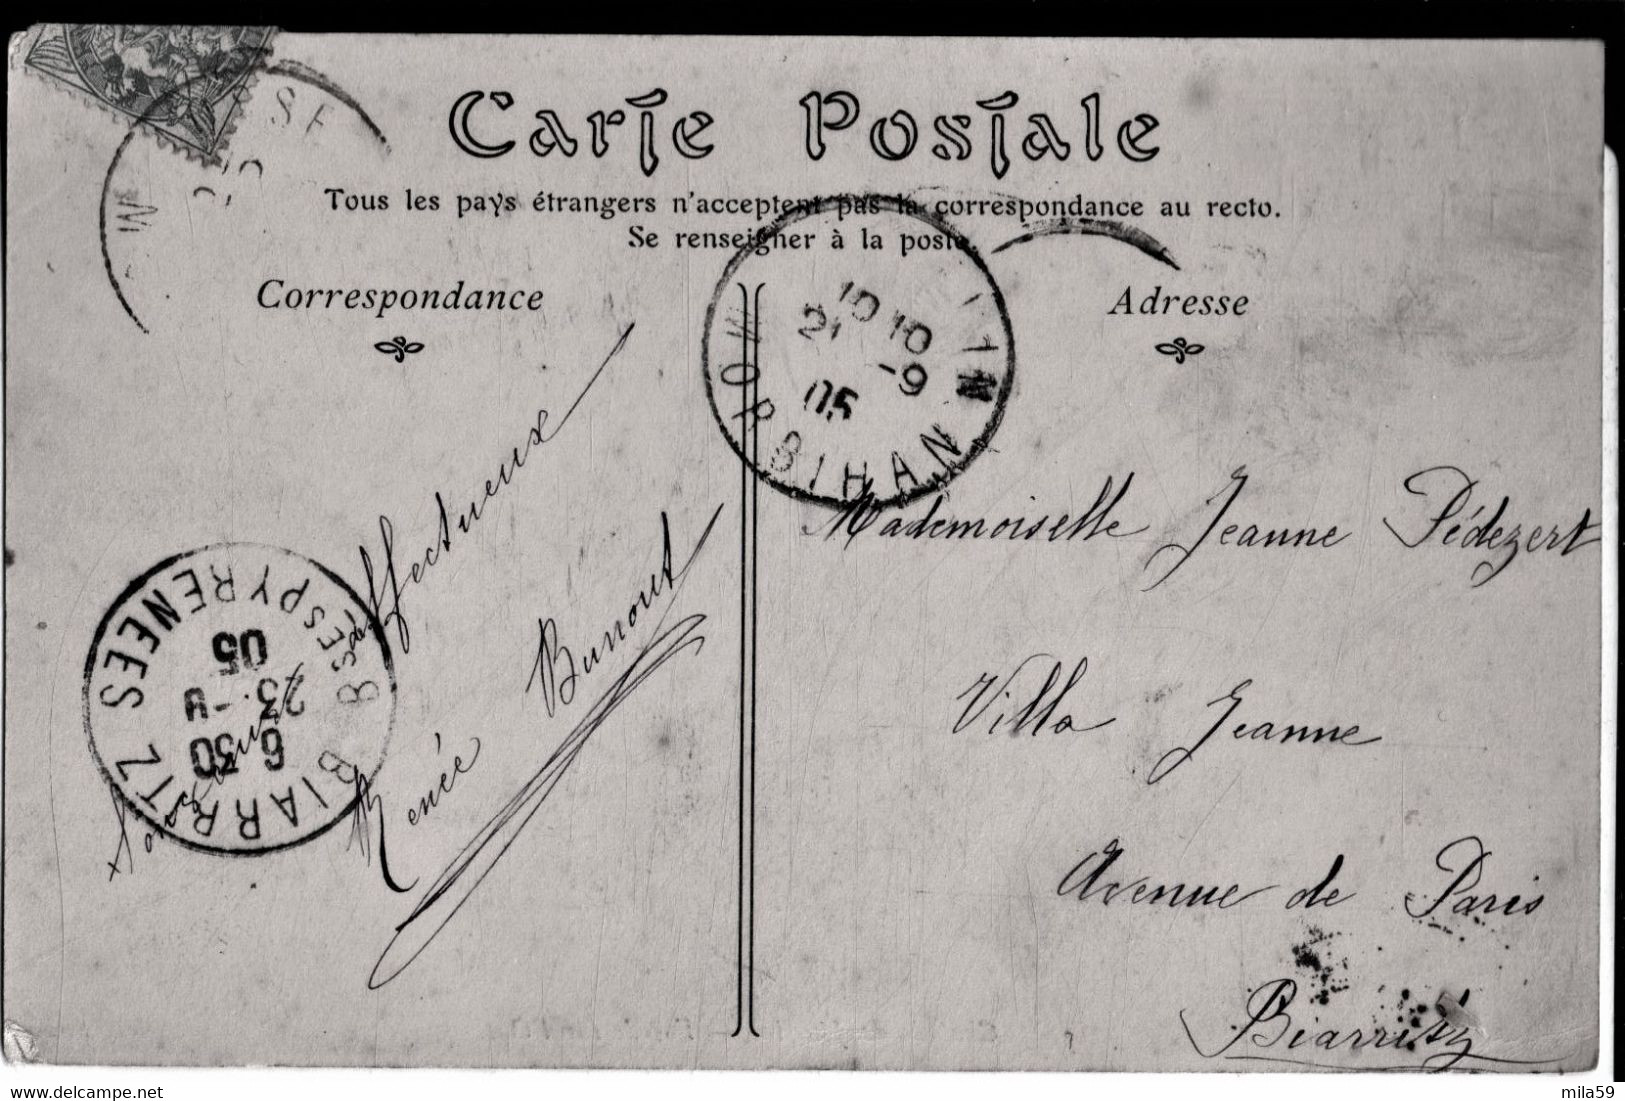 Carte Postale
Tous les pays étrangers n'acceptent pas la correspondance au recto.
Se renseigner à la poste.
Correspondance
Adresse
MORBIHAN
10 10
21 -9
05
Affectueux
Renée Bunout
BIARRITZ
BSES PYRENEES
6 30
23 -9
05
Mademoiselle Jeanne Pédezert
Villa Jeanne
Avenue de Paris
Biarritz
https://www.delcampe.net
mila59